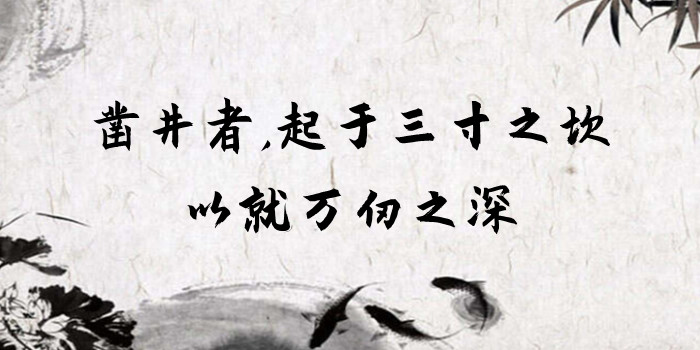 凿井者,起于三寸之坎
以就万仞之深